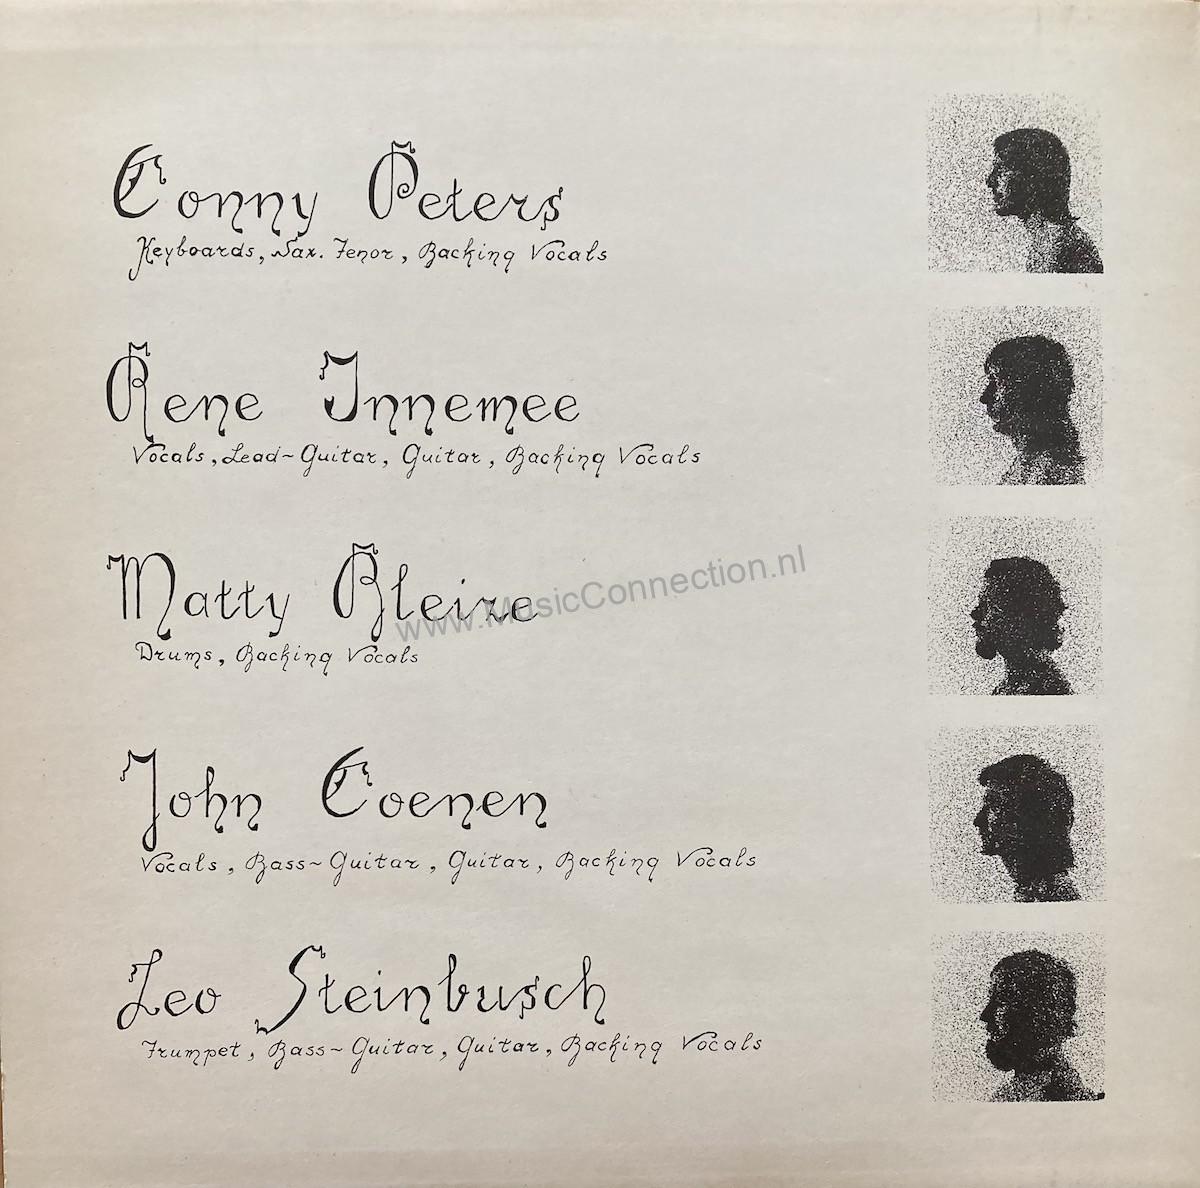 Conny Peters
Keyboards, Sax. Tenor, Backing Vocals
Rene Innemee
Vocals, Lead~Guitar, Guitar, Backing Vocals
Matty Bleize
www.MusicConnection.nl
Drums, Backing Vocals
John Coenen
Vocals, Bass~Guitar, Guitar, Backing Vocals
Leo Steinbusch
Trumpet, Bass~Guitar, Guitar, Backing Vocals